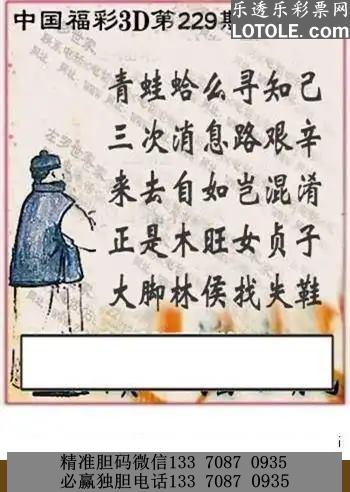 乐透乐彩票网
LOTOLE.COM
中国福彩3D第229期
青蛙蛤么寻知己
三次消息路艰辛
来去自如岂混淆
正是木旺女贞子
大脚林侯找失鞋
精准胆码微信133 7087 0935
必赢独胆电话133 7087 0935